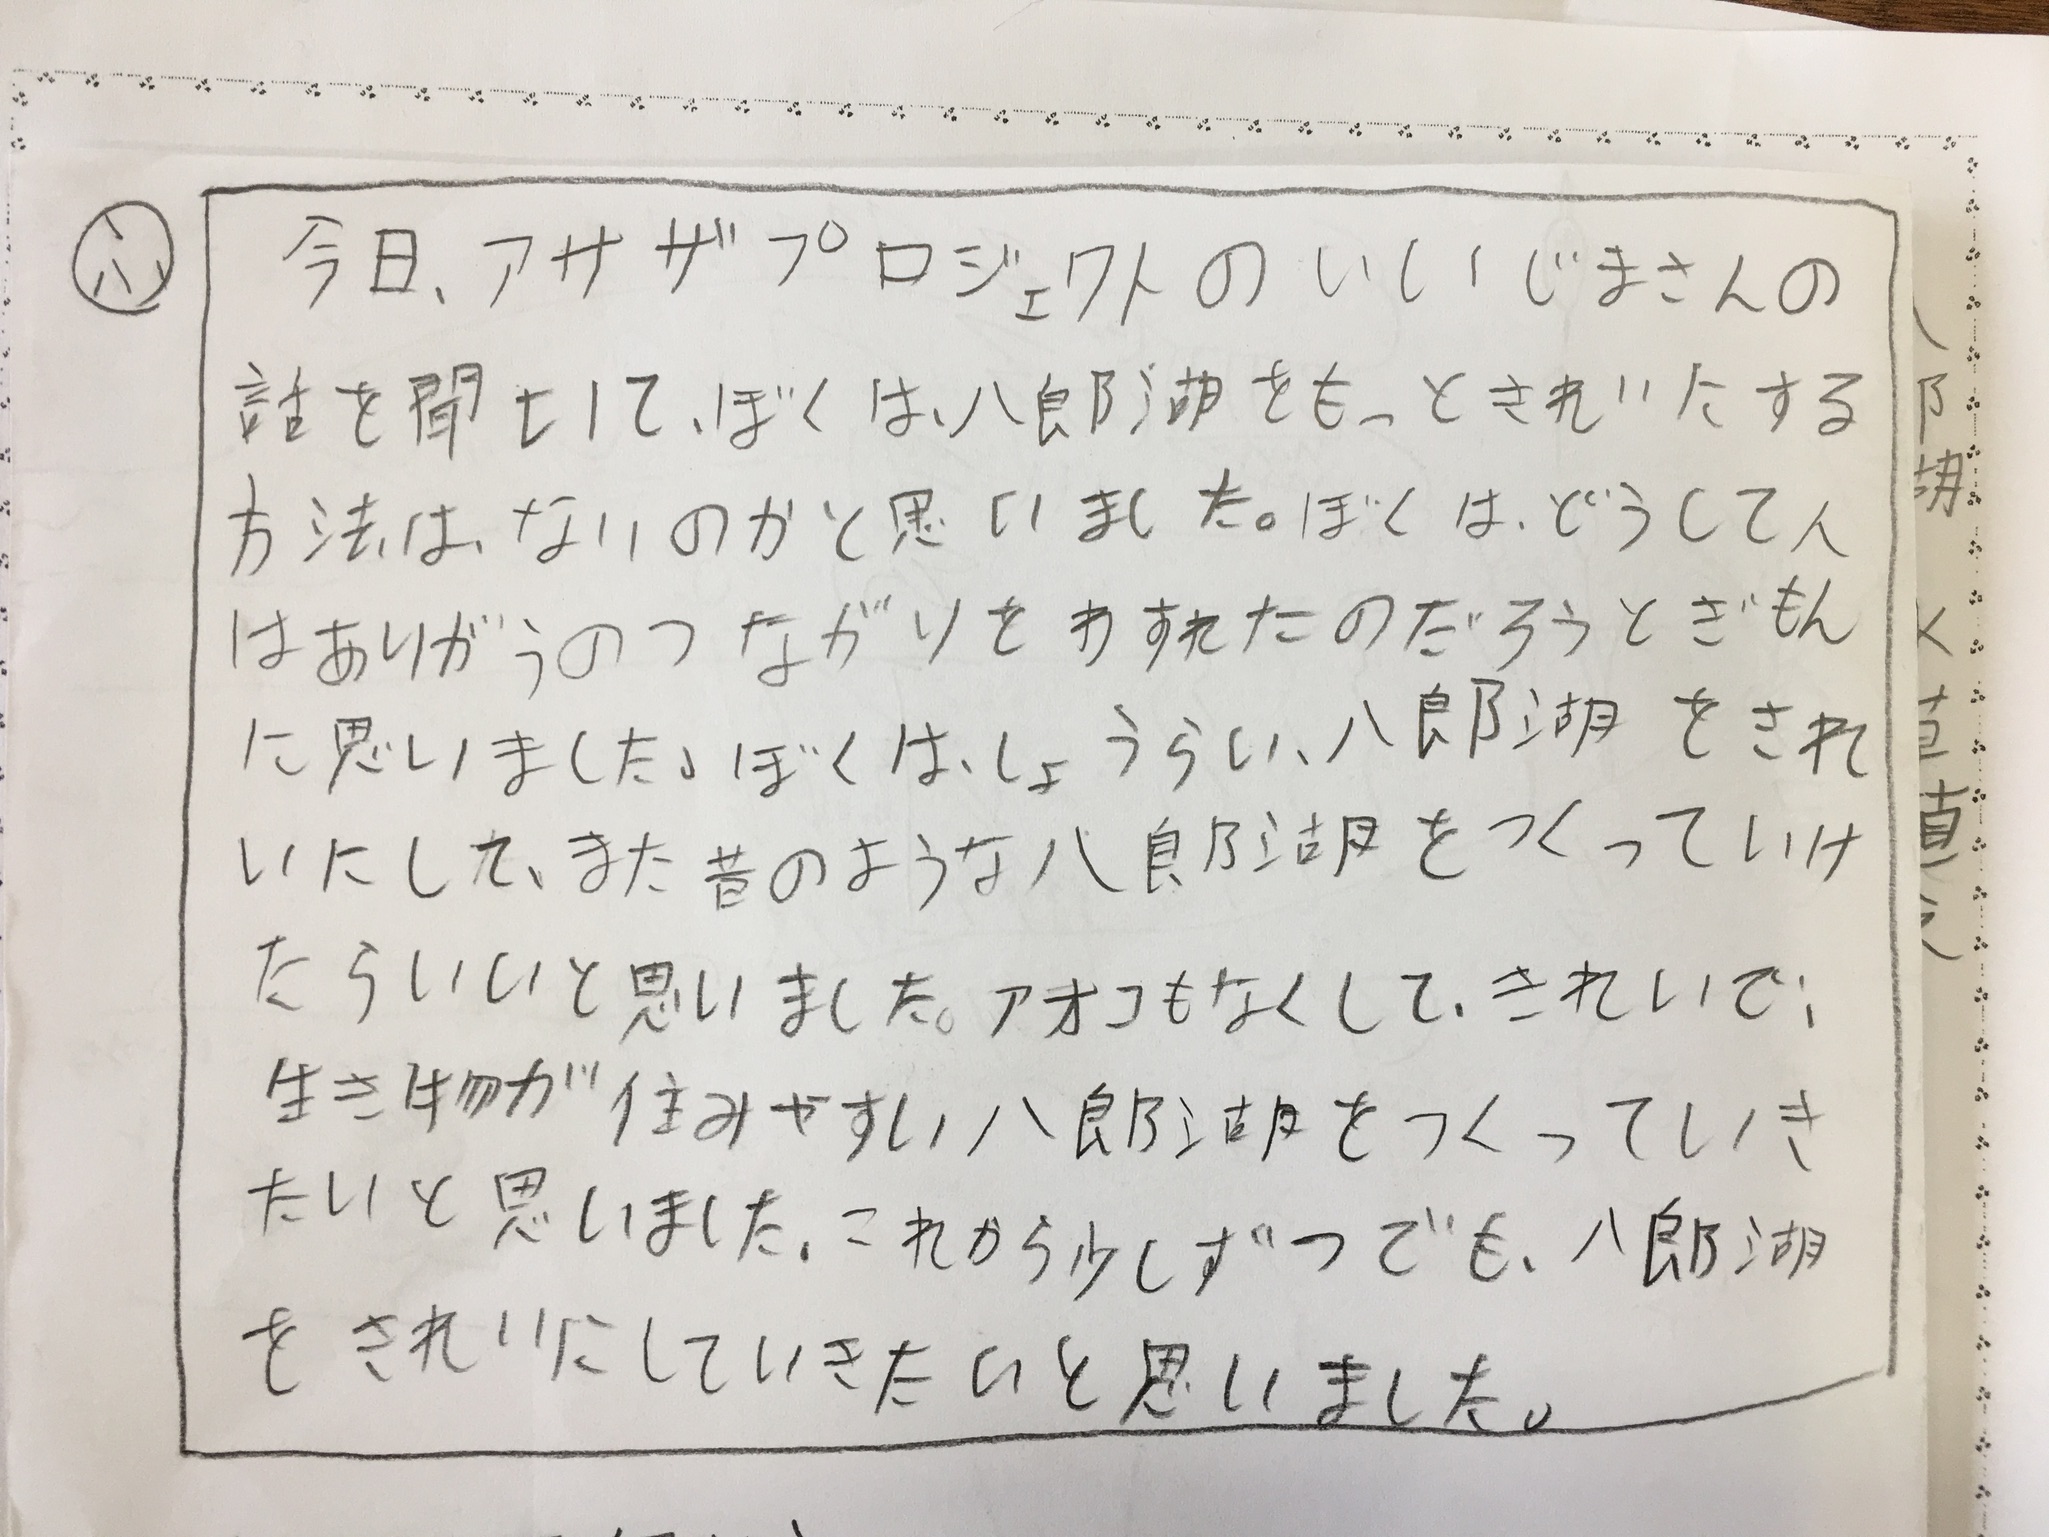 ふ
今日、アサザプロジェクトのいいじまさんの
話を聞いて、ぼくは、八郎湖をもっときれいにする
方法は、ないのかと思いました。ぼくは、どうして人
はありがうのつながりをわすれたのだろうとぎもん
に思いました。ぼくは、しょうらい、八郎湖をきれ
いにして、また昔のような八郎湖をつくっていけ
たらいいと思いました。アオコもなくして、きれいで、
生き物が住みやすい八郎湖をつくっていき
たいと思いました。これから少しずつでも、八郎湖
をきれいにしていきたいと思いました。